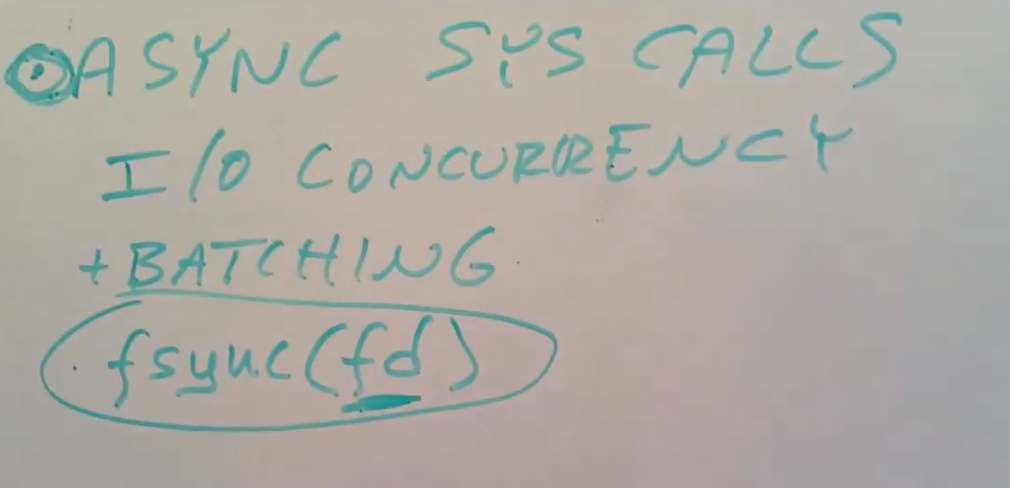 ASYNC SYS CALLS
I/O CONCURRENCY
+ BATCHING
fsync(fd)